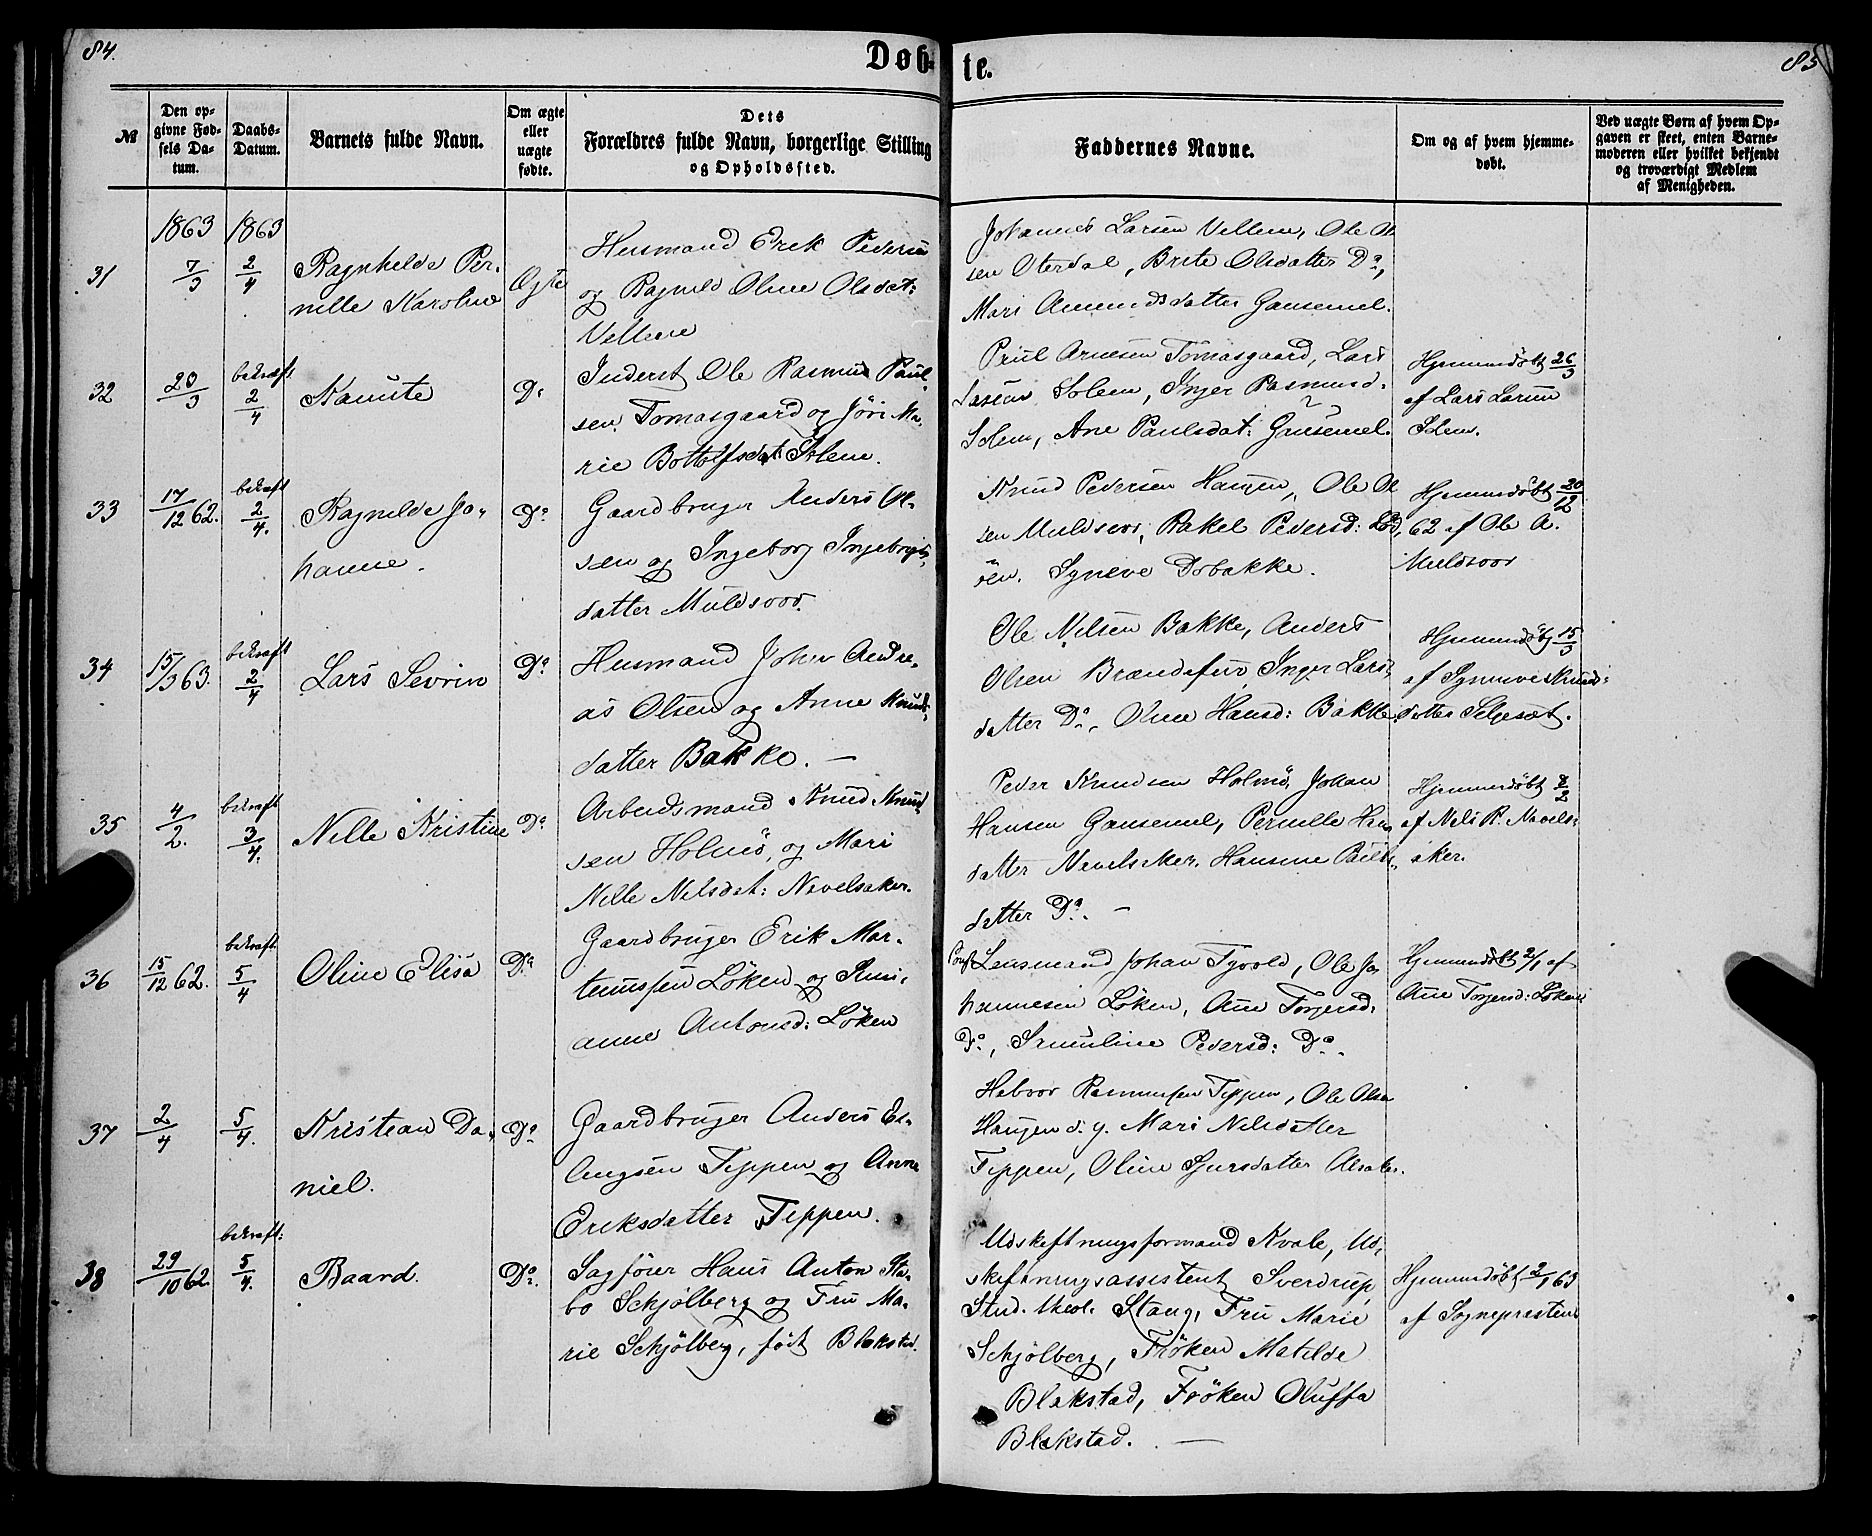 84.
Døb-
te.
85
№
Den op-
givne Fød-
sels Da-
tum.
Daabs-
Datum.
Barnets fulde Navn.
Om ægte
eller
uægte
fødte.
Dets
Forældres fulde Navn, borgerlige Stilling
og Opholdssted.
Faddernes Navne.
Om og af hvem hjemme-
døbt.
Ved uægte Børn af hvem Op-
gaven er skeet, enten Barne-
moderen eller hvilket bekjendt
og troværdigt Medlem
af Menigheden.
1863 1863
31
7/3
2/4
Ragnhelde Per-
nille Karoline
Ægte
Husmand Erek Pedersen
og Ragnild Oline Olsdat:
Vellene
Johannes Larsen Vellene, Ole Ol
sen Oterdal, Brite Olsdatter Do,
Mari Amundsdatter Gausemel.
32
20/3
bekræft
2/4
Kanute
Do
Inderst Ole Rasmus Paul-
sen Tomasgaard og Jöri Ma-
rie Bottolfsdat: Solem.
Poul Arnesen Tomasgaard, Lars
Larsen Solem, Inger Rasmusd.
Solem, Ane Paulsdat: Gausemel.
Hjemmedøbt 26/3
af Lars Larsen
Solem.
33
17/12 62.
bekræft
2/4.
Ragnilde Jo-
hanne.
Do
Gaardbruger Anders Ol-
sen og Ingeborg Ingebrigts-
datter Muldsvor.
Knud Pedersen Haugen, Ole Ol
sen Muldsvor, Rakel Pedersd:
ören. Syneve Dobakke.
Hjemmedøbt 20/12
62 af Ole A.
Muldsvor
34
15/3 63.
bekræft
2/4
Lars Sevrin
Do
Husmand Johan Andre-
as Olsen og Anne Knuds-
datter Bakke. —
Ole Nilsen Bakke, Anders
Olsen Brændefur, Inger Lars-
datter Do., Oline Hansd: Bakke.
Hjemmedøbt 15/3
af Syneve Knuds-
datter Selgeset.
35
4/2.
bekræft
3/4.
Nelle Kristine
Do
Arbeidsmand Knud Knud
sen Holmö, og Mari
Nille Nilsdat: Nevelsaker.
Peder Knudsen Holmö, Johan
Hansen Gausemel, Pernille Han
datter Nevelsaker, Hansine Pauls-
datter Do. —
Hjemmedøbt 8/2
af Nels R. Nevels-
aker.
36
15/12 62.
bekræft.
5/4
Oline Elisa
Do
Gaardbruger Erik Mar-
tinussen Löken og
anne Antonsd: Löken
Lensmand Johan Tyvold, Ole Jo
hannesen Löken, Ane Torgersd.
Do., Pedersd: Do.
Hjemmedøbt 2/1 af
Ane Torgersd: Löken
37
2/4
5/4.
Kristian Da-
niel.
Do
Gaardbruger Anders Er-
lingsen Tippen og Anne
Eriksdatter Tippen.
Halvor Rasmussen Tippen, Ole Olsen
Haugen d. y. Mari Nilsdatter
Tippen, Oline Sjursdatter Alsaker.
38
29/10 62
bekræft:
5/4.
Baard.
Do.
Sagförer Hans Anton Sta-
bo Schjölberg og Fru Ma-
rie Schjölberg, født Blakstad.
Udskiftningsformand Kvale, Ud-
skiftningsassistent Sverdrup,
Stud. theol. Stang, Fru Marie
Schjölberg, Fröken Matilde
Blakstad, Fröken Oluffa
Blakstad. —
Hjemmedøbt 2/1 63
af Sognepresten